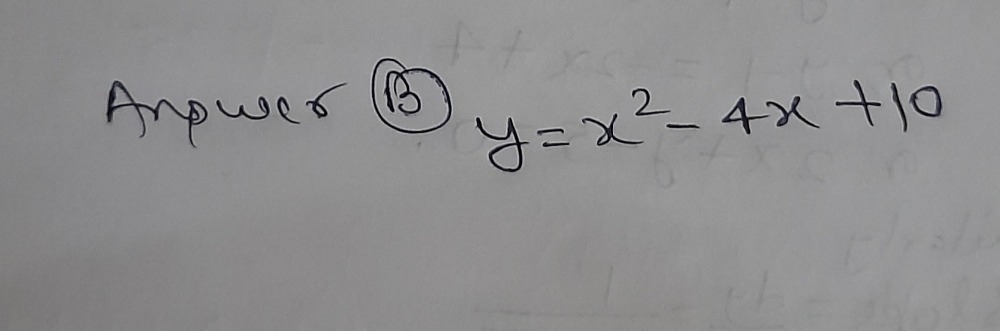 Answer B y = x² - 4x + 10